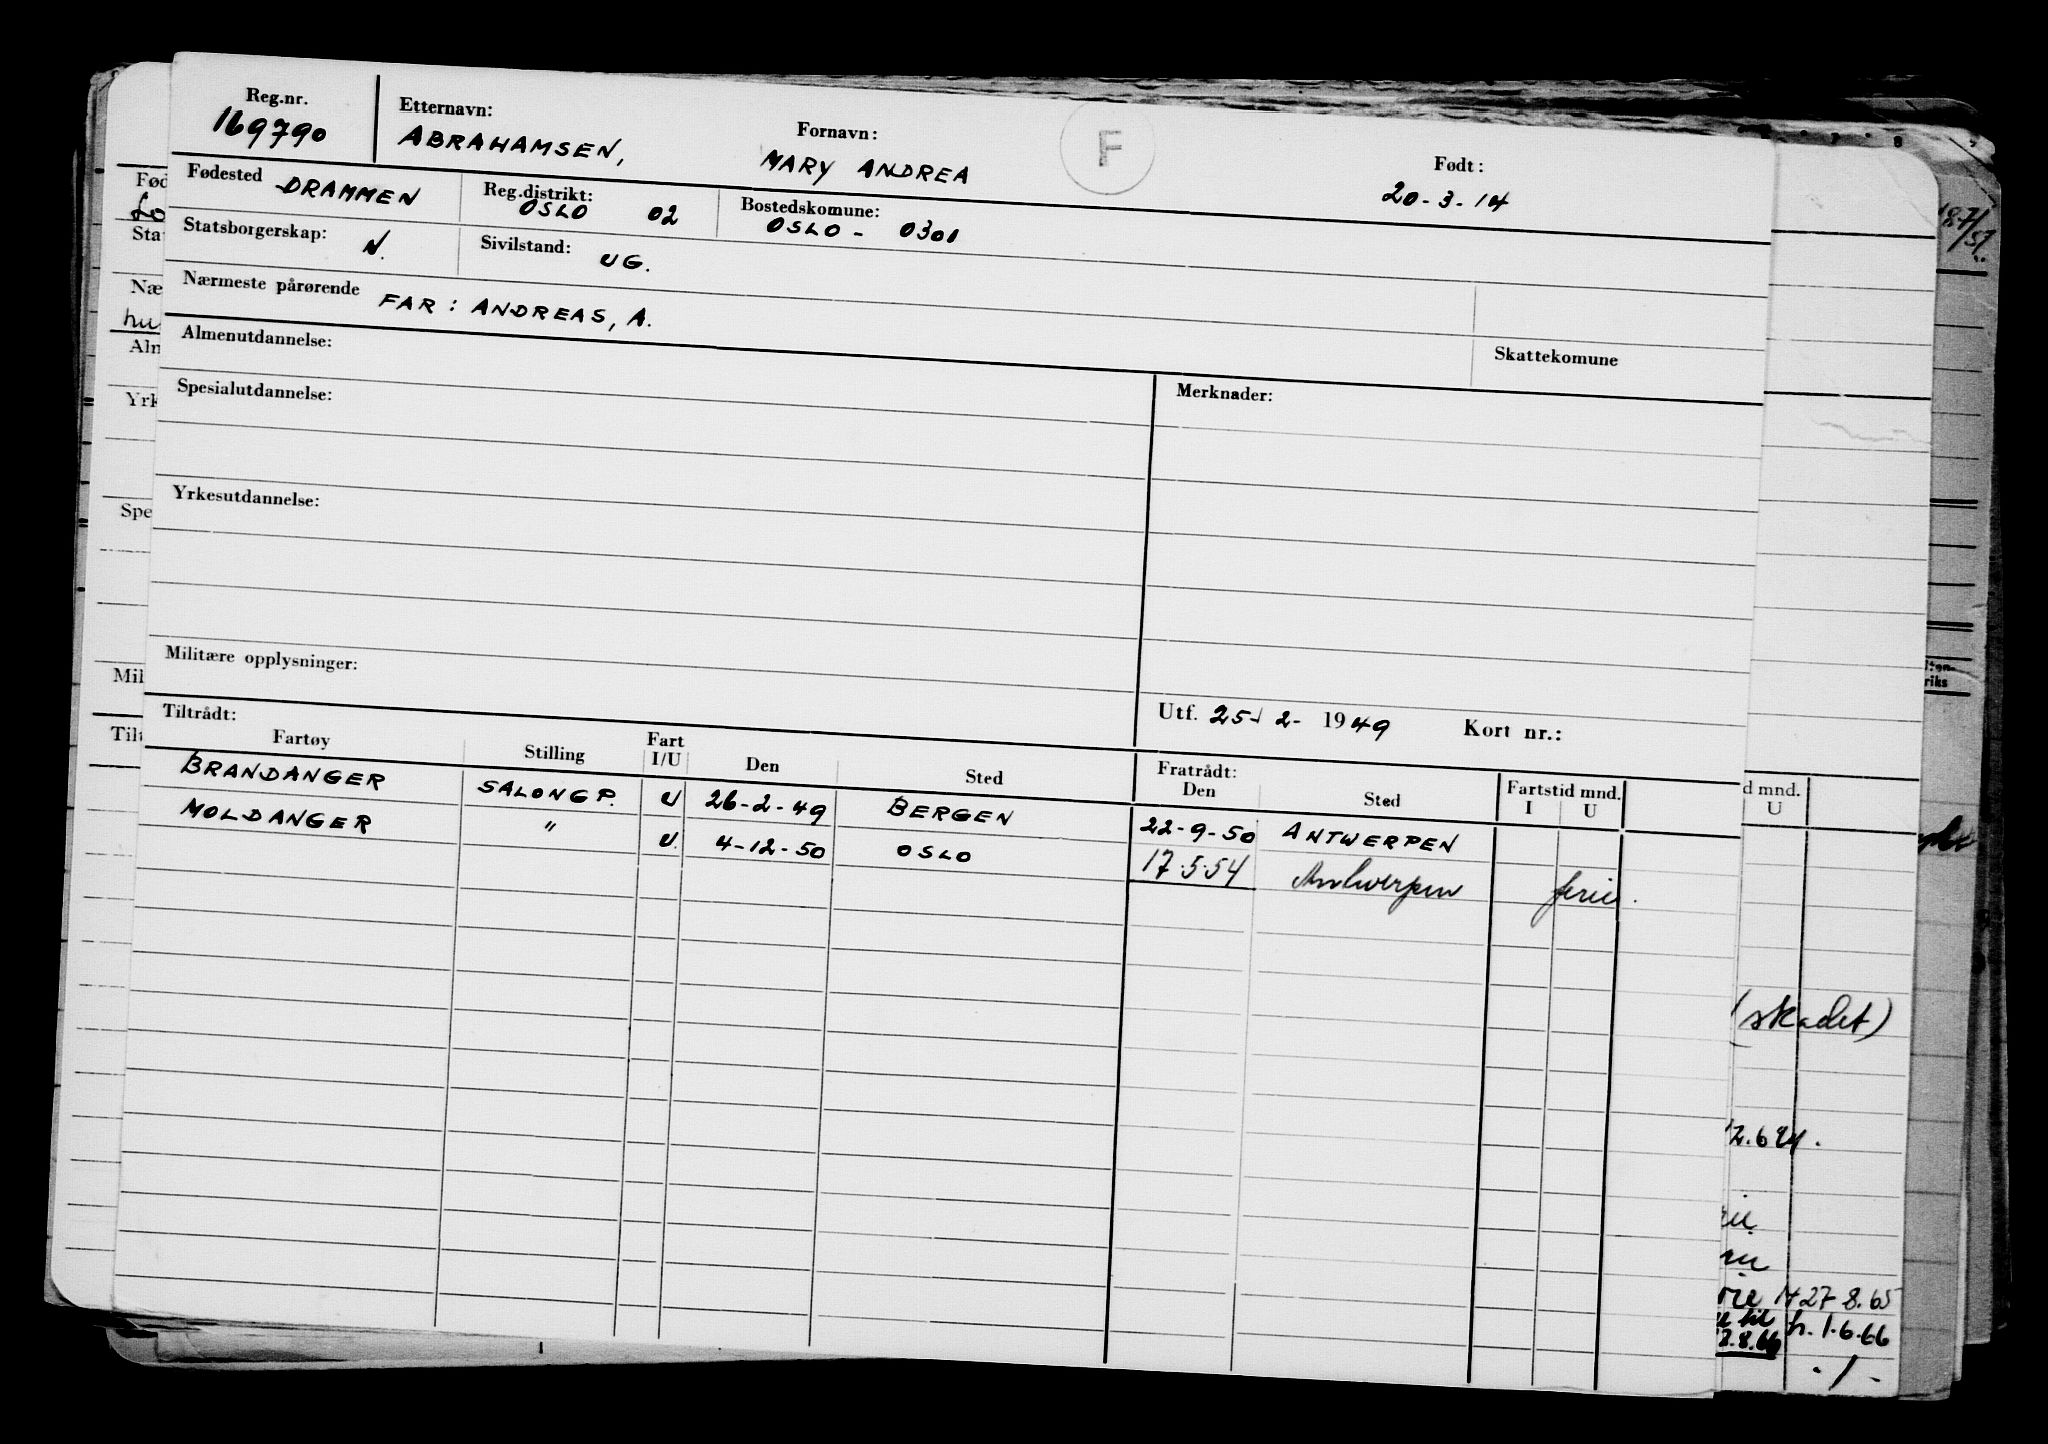 Reg.nr. Etternavn: Fornavn: F Født:
169790 ABRAHAMSEN, MARY ANDREA 20-3-14
Fødested DRAMMEN Reg.distrikt: OSLO 02 Bostedskomune: OSLO - 0301
Statsborgerskap: N. Sivilstand: UG.
Nærmeste pårørende FAR: ANDREAS, A.
Almenutdannelse: Skattekomune
Spesialutdannelse: Merknader:
Yrkesutdannelse:
Militære opplysninger:
Utf. 25- 2- 1949 Kort nr.:
Tiltrådt: Fratrådt:
Fartøy Stilling Fart I/U Den Sted Den Sted Fartstid mnd. I U
BRANDANGER SALONGP. U 26-2-49 BERGEN 22-9-50 ANTWERPEN
MOLDANGER " U. 4-12-50 OSLO 17.5.54 Antwerpen ferie.
Fød
Stat
Næ
hu
Aln
Yrk
Spe
Mil
Tilt
riks
d mnd.
U
(skadet)
12.6
27 8.65
fr. 1.6.66